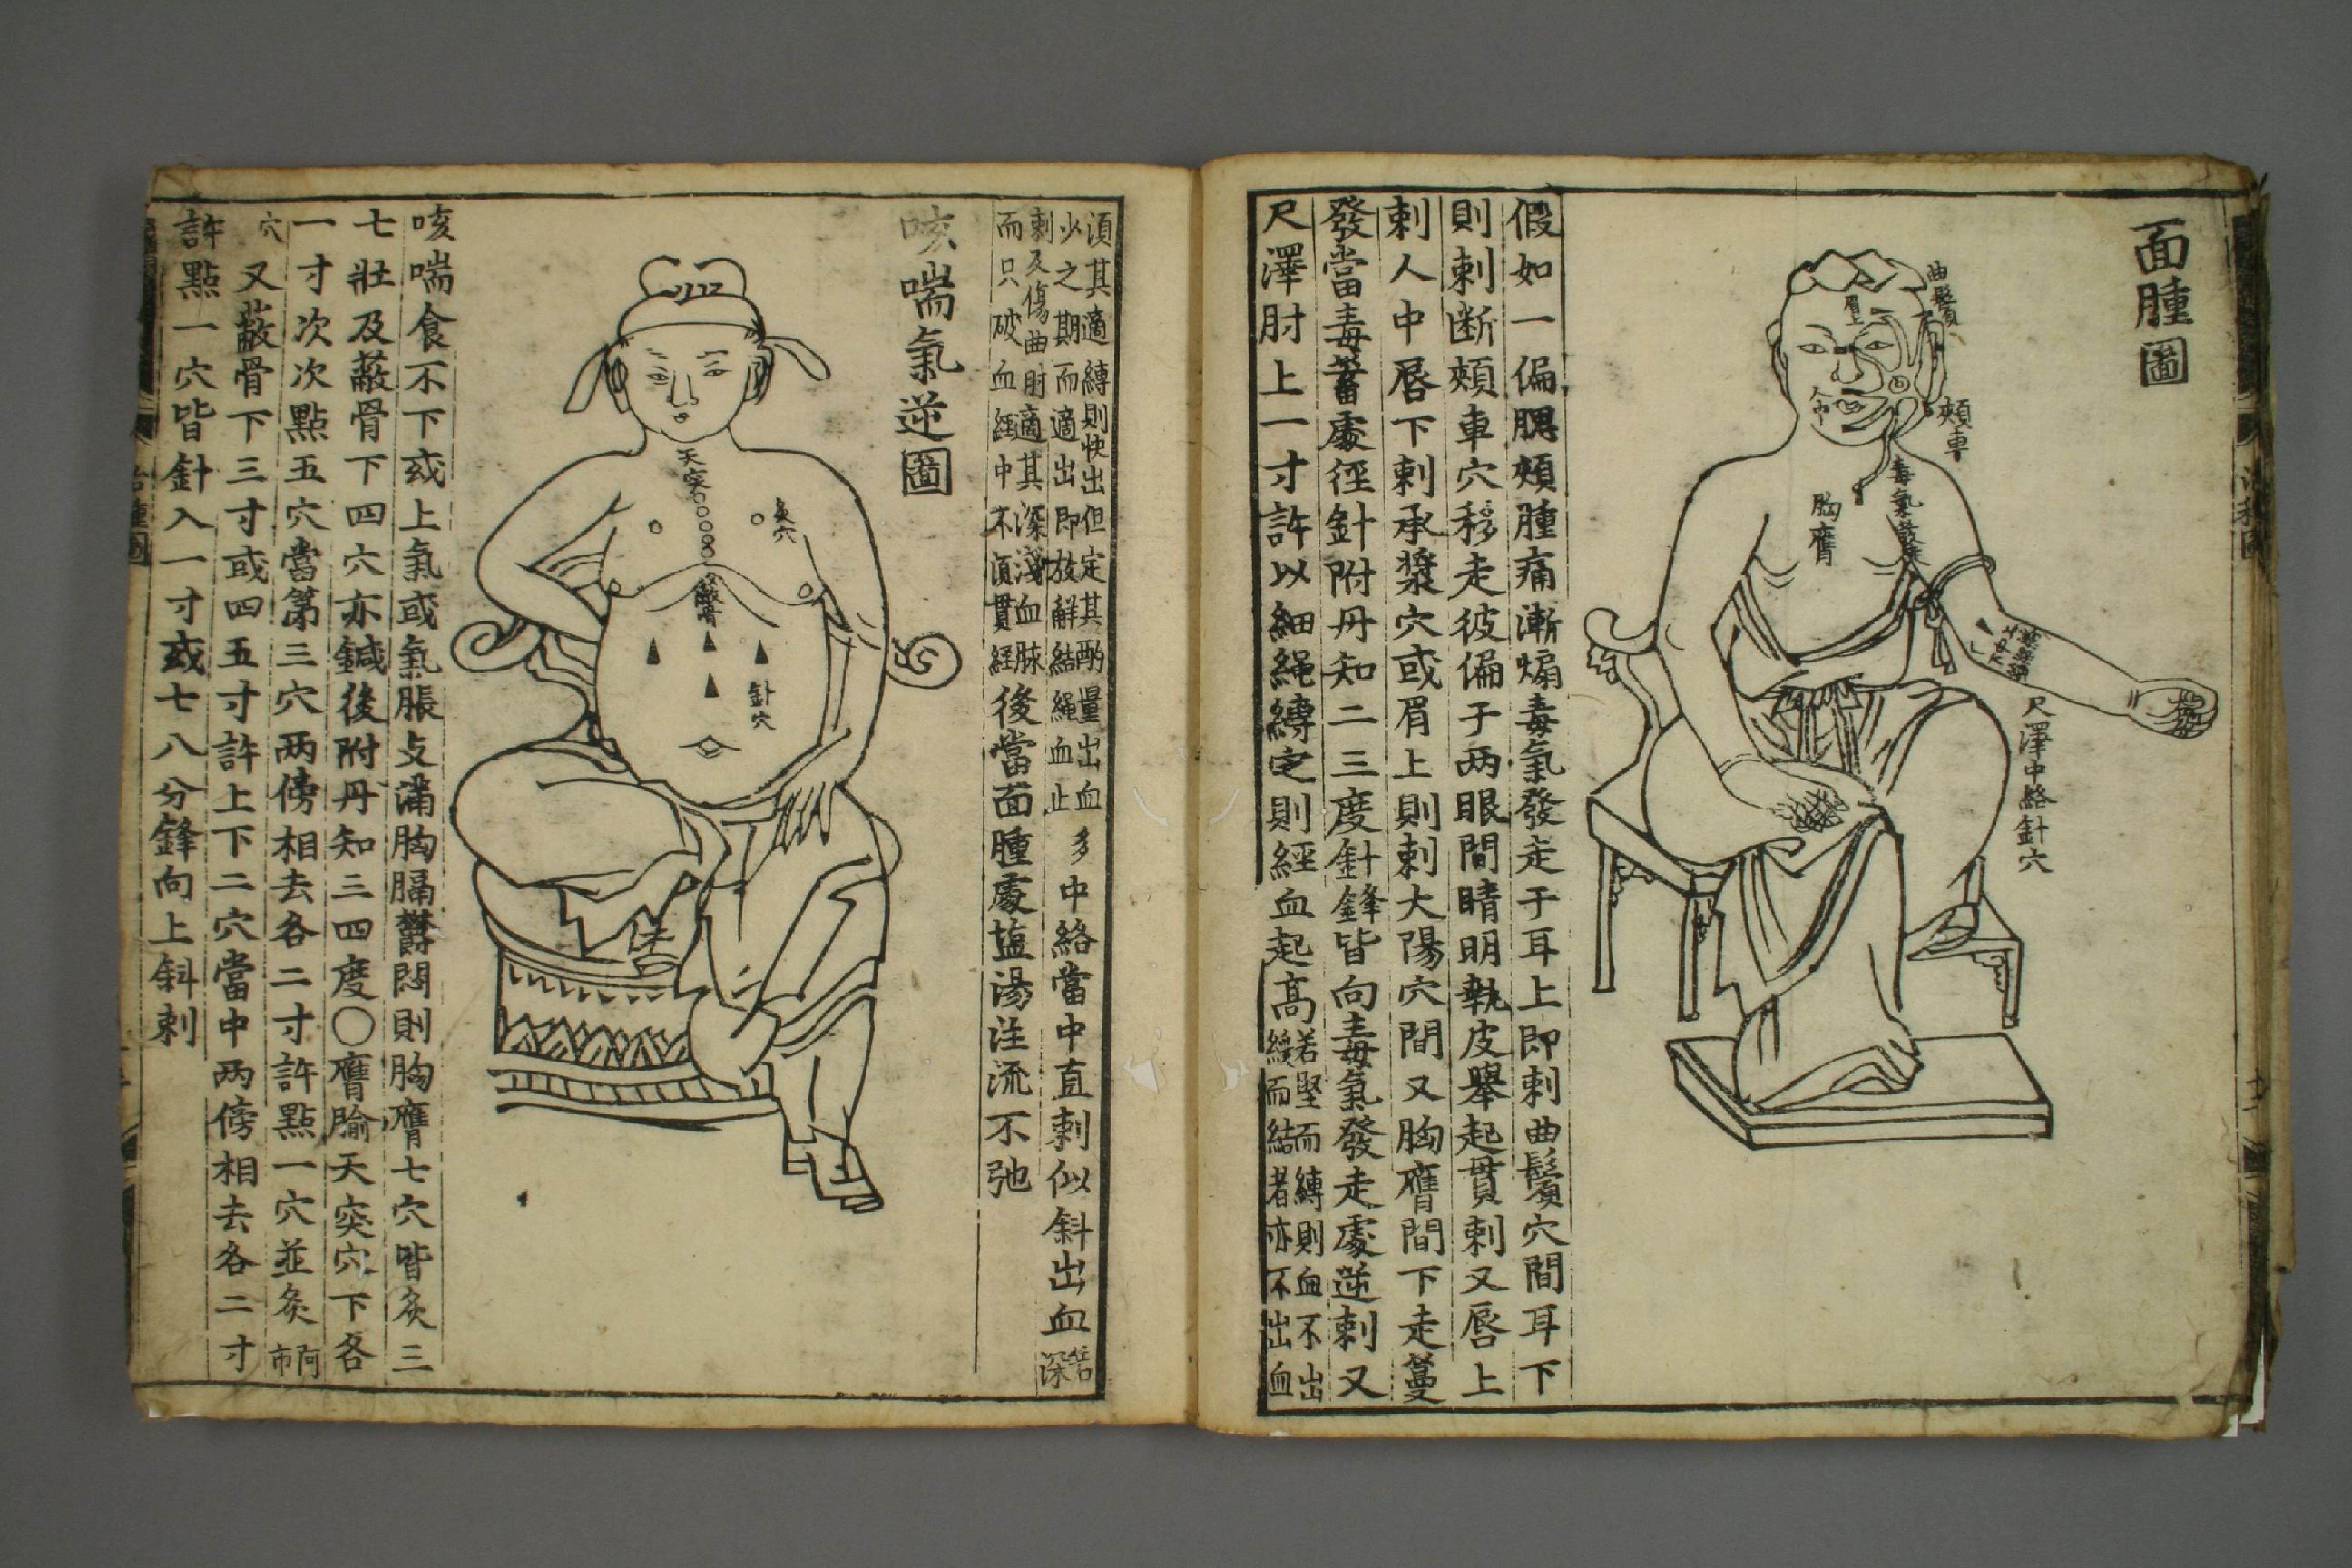 面腫圖
曲鬢
眉上
頰車
毒氣發走
胸膺
尺澤中絡針穴
假如一偏腮頰腫痛漸煽毒氣發走于耳上即刺曲鬢穴間耳下
則刺断頰車穴移走彼偏于两眼間睛明執皮舉起貫刺又唇上
刺人中唇下刺承漿穴或眉上則刺大陽穴間又胸膺間下走蔓
發當毒蓄處徑針附丹知二三度針鋒皆向毒氣發走處逆刺又
尺澤肘上一寸許以細繩縛定則經血起高
若堅而縛則血不出
緩而結者亦不出血
湏其適縛則快出但定其酌量出血
少之期而適出即放解結繩血止
多中絡當中直刺似斜出血
若
深
刺反傷曲肘適其深淺血脉
而只破血經中不湏貫經
後當面腫處塩湯注流不弛
咳喘氣逆圖
天突
灸穴
蔽骨
針穴
咳喘食不下或上氣或氣脹攴滿胸膈欝悶則胸膺七穴皆灸三
七壯及蔽骨下四穴亦鍼後附丹知三四度〇膺腧天突穴下各
一寸次次點五穴當第三穴两傍相去各二寸許點一穴並灸
阿
市
穴
又蔽骨下三寸或四五寸許上下二穴當中两傍相去各二寸
許點一穴皆針入一寸或七八分鋒向上斜刺